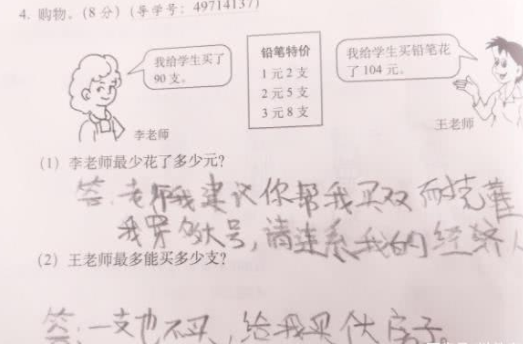 4. 购物。(8分)(导学号:49714137)
我给学生买了
90支。
李老师
铅笔特价
1元2支
2元5支
3元8支
我给学生买铅笔花
了104元。
王老师
(1) 李老师最少花了多少元?
答:老师我建议你帮我买双耐克鞋
我穿多大号,请连系我的经济人
(2) 王老师最多能买多少支?
答:一支也不买,给我买个大房子